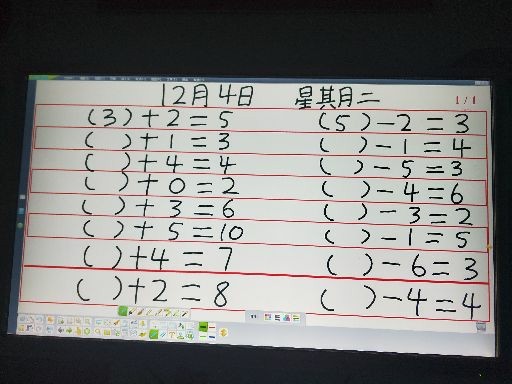 12月4日 星期二
1/1
(3)+2=5 (5)-2=3
( )+1=3 ( )-1=4
( )+4=4 ( )-5=3
( )+0=2 ( )-4=6
( )+3=6 ( )-3=2
( )+5=10 ( )-1=5
( )+4=7 ( )-6=3
( )+2=8 ( )-4=4